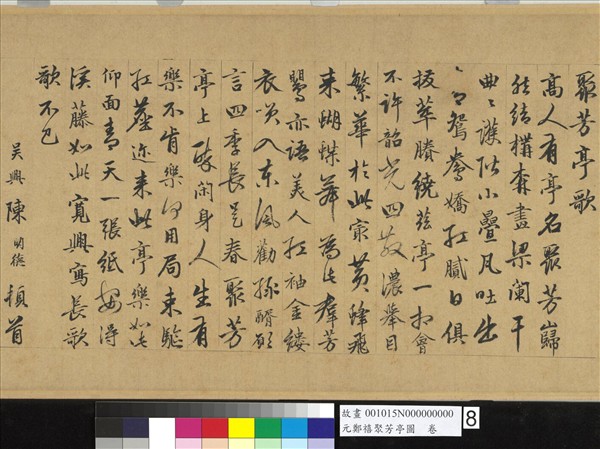 聚芳亭歌
高人有亭名聚芳巋
然結構森畫梁闌干
曲曲護階小疊吐出
鴛鴦嬌紅膩白俱
拔萃賸繞茲亭一相會
不許韶光四散濃舉目
繁華於此家黃蜂飛
來蝴蝶舞為此群芳
鸎亦語美人紅袖金縷
衣吹入東風勸醑願
言四季長是春聚芳
亭上醉閑身人生有
樂不肯樂何用局束
紅塵迩來此亭樂如此
仰面青天一張紙安得
溪藤如此寬興寫長歌
歌不已
吳興陳明德頓首
故畫 001015N000000000
元鄭禧聚芳亭圖 卷
8